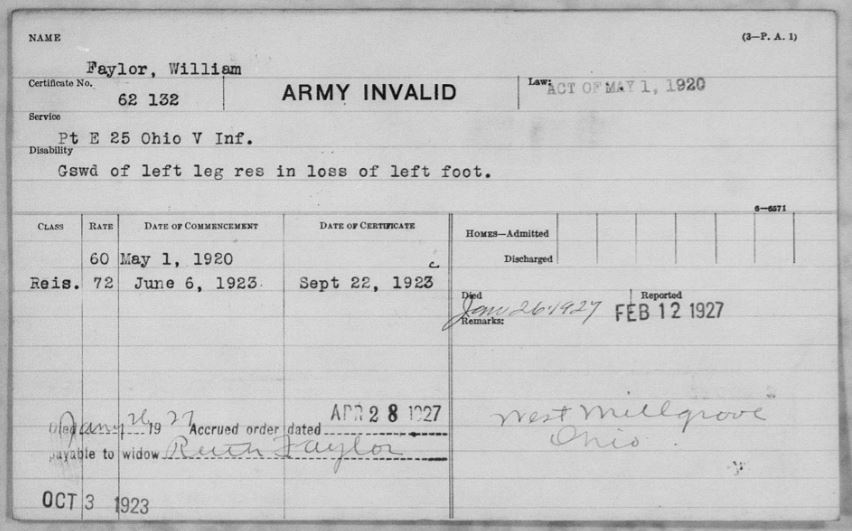 NAME
(3—P. A. 1)
Faylor, William
Certificate No.
62 132
ARMY INVALID
Law: ACT OF MAY 1, 1920
Service
Pt E 25 Ohio V Inf.
Disability
Gswd of left leg res in loss of left foot.
6—6571
CLASS RATE DATE OF COMMENCEMENT DATE OF CERTIFICATE
HOMES—Admitted
Discharged
60 May 1, 1920
Reis. 72 June 6, 1923 Sept 22, 1923 c
Died Reported
Jan 26-1927 FEB 12 1927
Remarks:
Died Jany 26 1927 Accrued order dated APR 28 1927
payable to widow Ruth Faylor
West Millgrove
Ohio.
OCT 3 1923